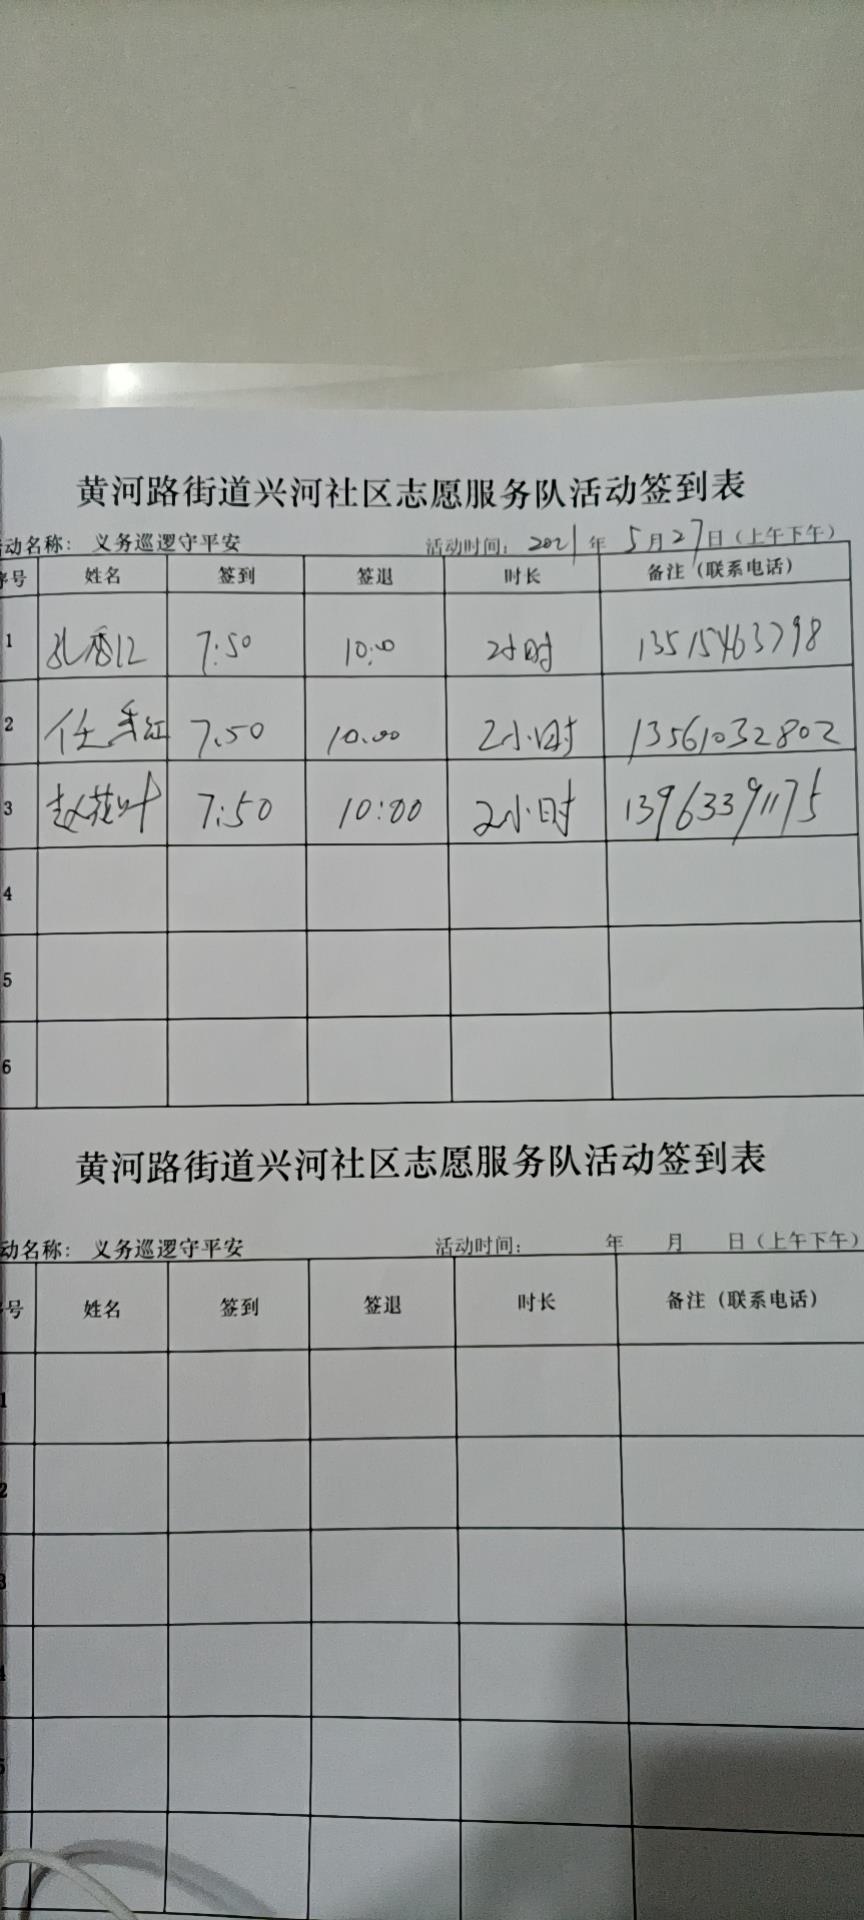 黄河路街道兴河社区志愿服务队活动签到表
活动名称： 义务巡逻守平安 活动时间： 2021 年 5 月 27 日（上午下午）
序号 姓名 签到 签退 时长 备注（联系电话）
1 孔香江 7:50 10:00 2小时 13515463798
2 任秀红 7.50 10.00 2小时 13561032802
3 赵花叶 7:50 10:00 2小时 13963391175
4
5
6
黄河路街道兴河社区志愿服务队活动签到表
动名称： 义务巡逻守平安 活动时间： 年 月 日（上午下午）
号 姓名 签到 签退 时长 备注（联系电话）
1
2
3
4
5